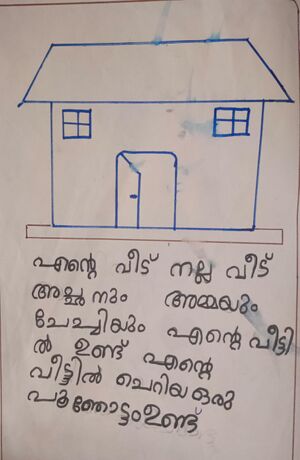 എന്റെ വീട് നല്ല വീട്
അച്ഛനും അമ്മയും
ചേച്ചിയും എന്റെ വീട്ടി
ൽ ഉണ്ട് എന്റെ
വീട്ടിൽ ചെറിയ ഒരു
പൂന്തോട്ടം ഉണ്ട്